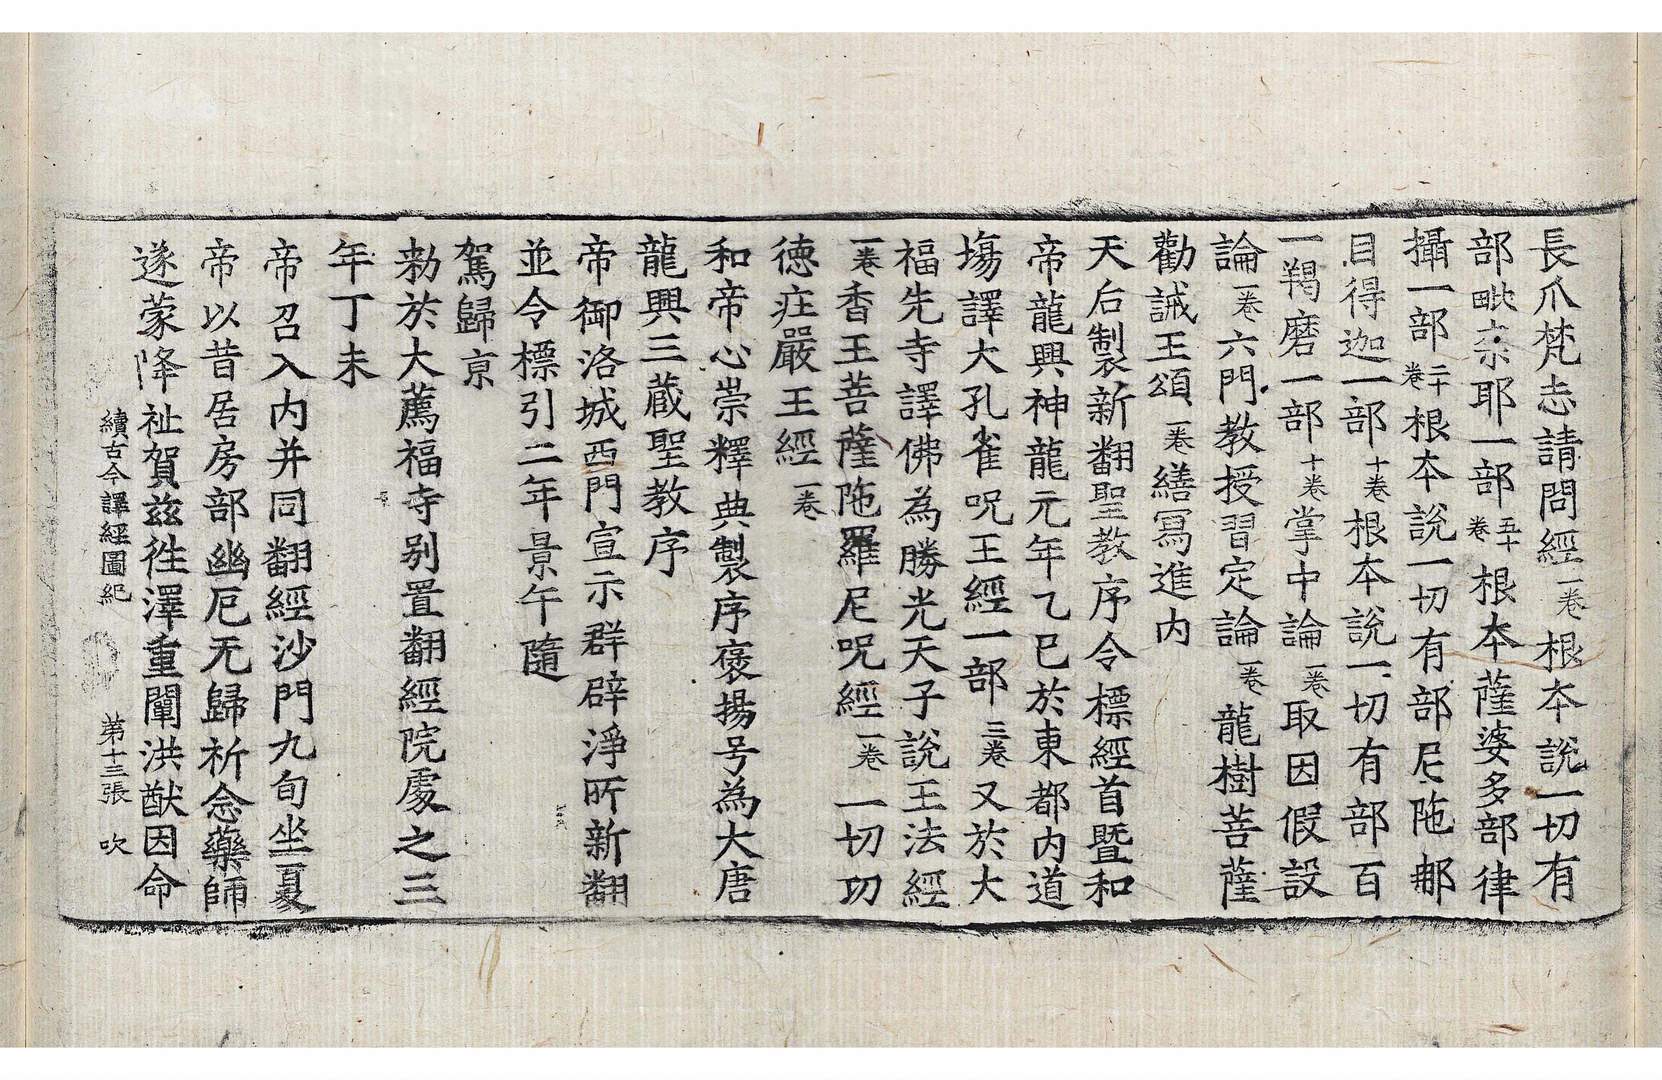 長爪梵志請問經一卷根本說一切有
部毗柰耶一部五十卷根本薩婆多部律
攝一部二十卷根本說一切有部尼陁那
目得迦一部十卷根本說一切有部百
一羯磨一部十卷掌中論一卷取因假設
論一卷六門教授習定論一卷龍樹菩薩
勸誡王頌一卷繕寫進內
天后製新翻聖教序令標經首暨和
帝龍興神龍元年乙巳於東都內道
場譯大孔雀呪王經一部三卷又於大
福先寺譯佛為勝光天子說王法經
一卷香王菩薩陁羅尼呪經一卷一切功
德庄嚴王經一卷
和帝心崇釋典製序褒揚号為大唐
龍興三藏聖教序
帝御洛城西門宣示群辟淨所新翻
並令標引二年景午隨
駕歸京
勑於大薦福寺别置翻經院處之三
年丁未
帝召入內并同翻經沙門九旬坐夏
帝以昔居房部幽厄无歸祈念藥師
遂蒙降祉賀茲徃澤重闡洪猷因命
續古今譯經圖紀 第十三張 吹